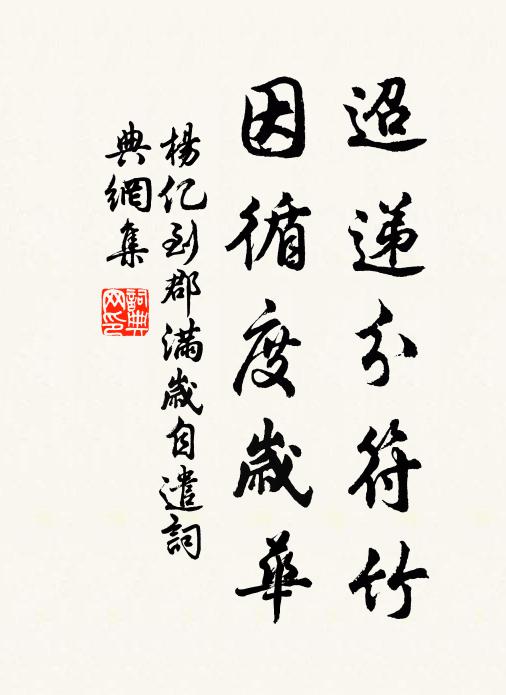 迢递分符竹
因循度歲華
楊億到郡滿歲自遣詞
典網集
詞典網印